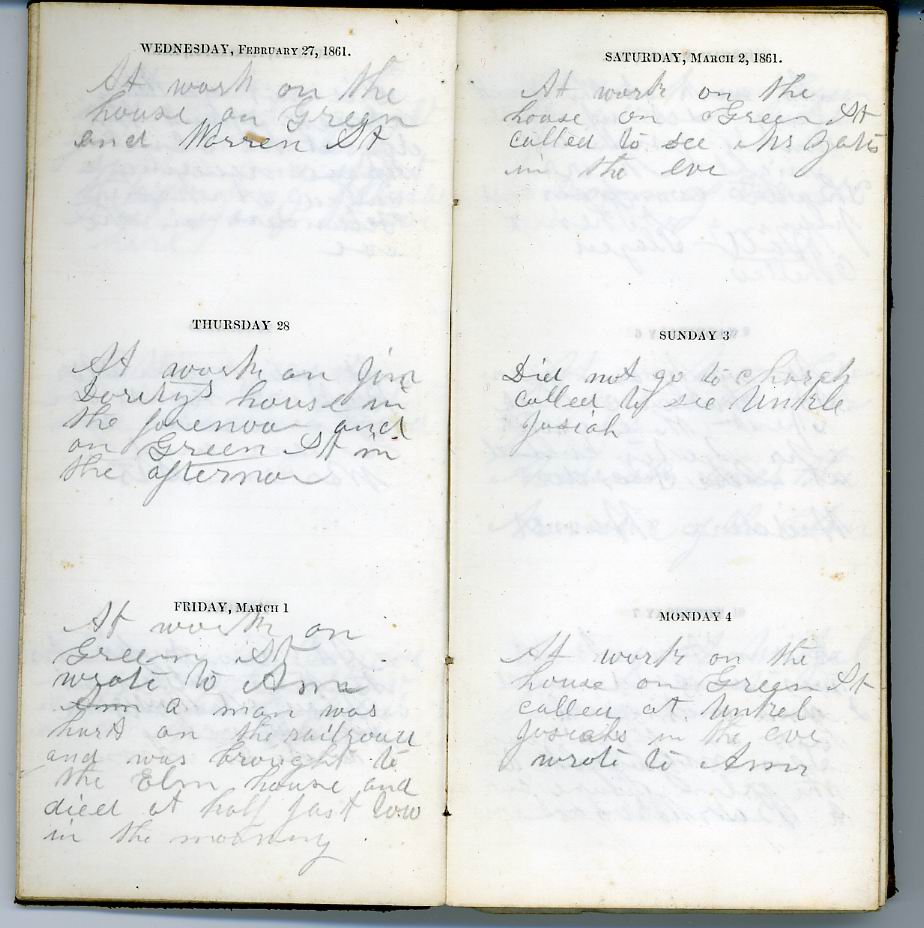 WEDNESDAY, FEBRUARY 27, 1861.
At work on the
house on Green
and Warren St
THURSDAY 28
At work on Jim
Doritys house in
the forenoon and
on Green St in
the afternoon
FRIDAY, MARCH 1
At work on
Green St
wrote to Ann
Ann a man was
hurt on the railroad
and was brought to
the Elm house and
died at half past two
in the morning
SATURDAY, MARCH 2, 1861.
At work on the
house on Green St
called to see Mr
in the eve
SUNDAY 3
Did not go to church
called to see Unkle
Josiah
MONDAY 4
At work on the
house on Green St
called at Unkel
Josiahs in the eve
wrote to Ann